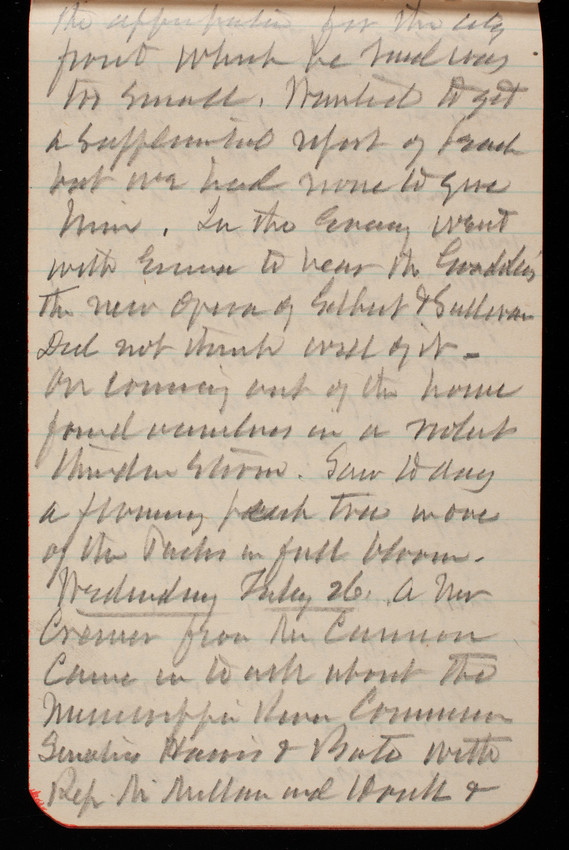 the appropriation for the city
front which he said was
too small. Wanted to get
a supplemental report of
but we had none to give
him. In the Evening went
with Emma to hear the Gondoliers
the new Opera of Gilbert & Sullivan
Did not think well of it -
On coming out of the house
found ourselves in a violent
thunder Storm. Saw to day
a flowering peach tree in one
of the Parks in full bloom.
Wednesday Feby 26. A Mr
from the
Came in to ask about the
Mississippi River Commission
Senators Harris & Bate with
Rep. McMillan and &